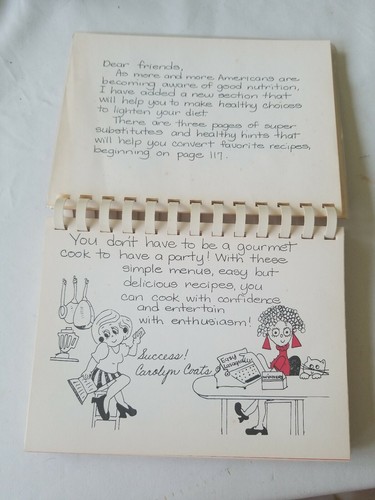 Dear friends,
As more and more Americans are
becoming aware of good nutrition,
I have added a new section that
will help you to make healthy choices
to lighten your diet
There are three pages of super
substitutes and healthy hints that
will help you convert favorite recipes,
beginning on page 117.
You don't have to be a gourmet
cook to have a party! With these
simple menus, easy but
delicious recipes, you
can cook with confidence
and entertain
with enthusiasm!
Success!
Carolyn Coats
Easy &